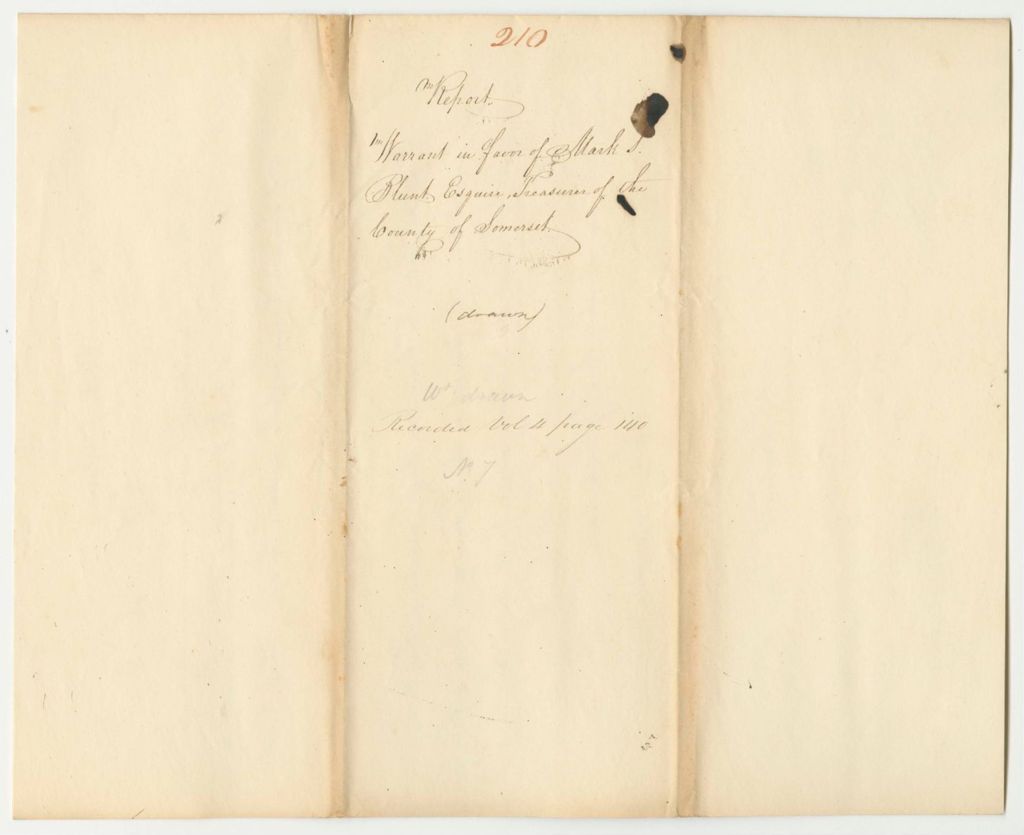 210
Report
Warrant in favor of Mark S.
Blunt Esquire, Treasurer of the
County of Somerset.
(drawn)
Wt drawn
Recorded Vol 4 page 140
No. 7